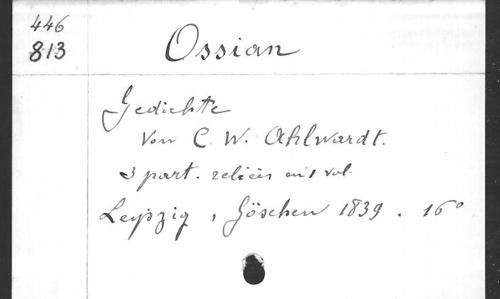 446
813
Ossian
Gedichte
Von C. W. Ahlwardt.
3 part. reliées en 1 vol.
Leipzig, Göschen 1839. 16°